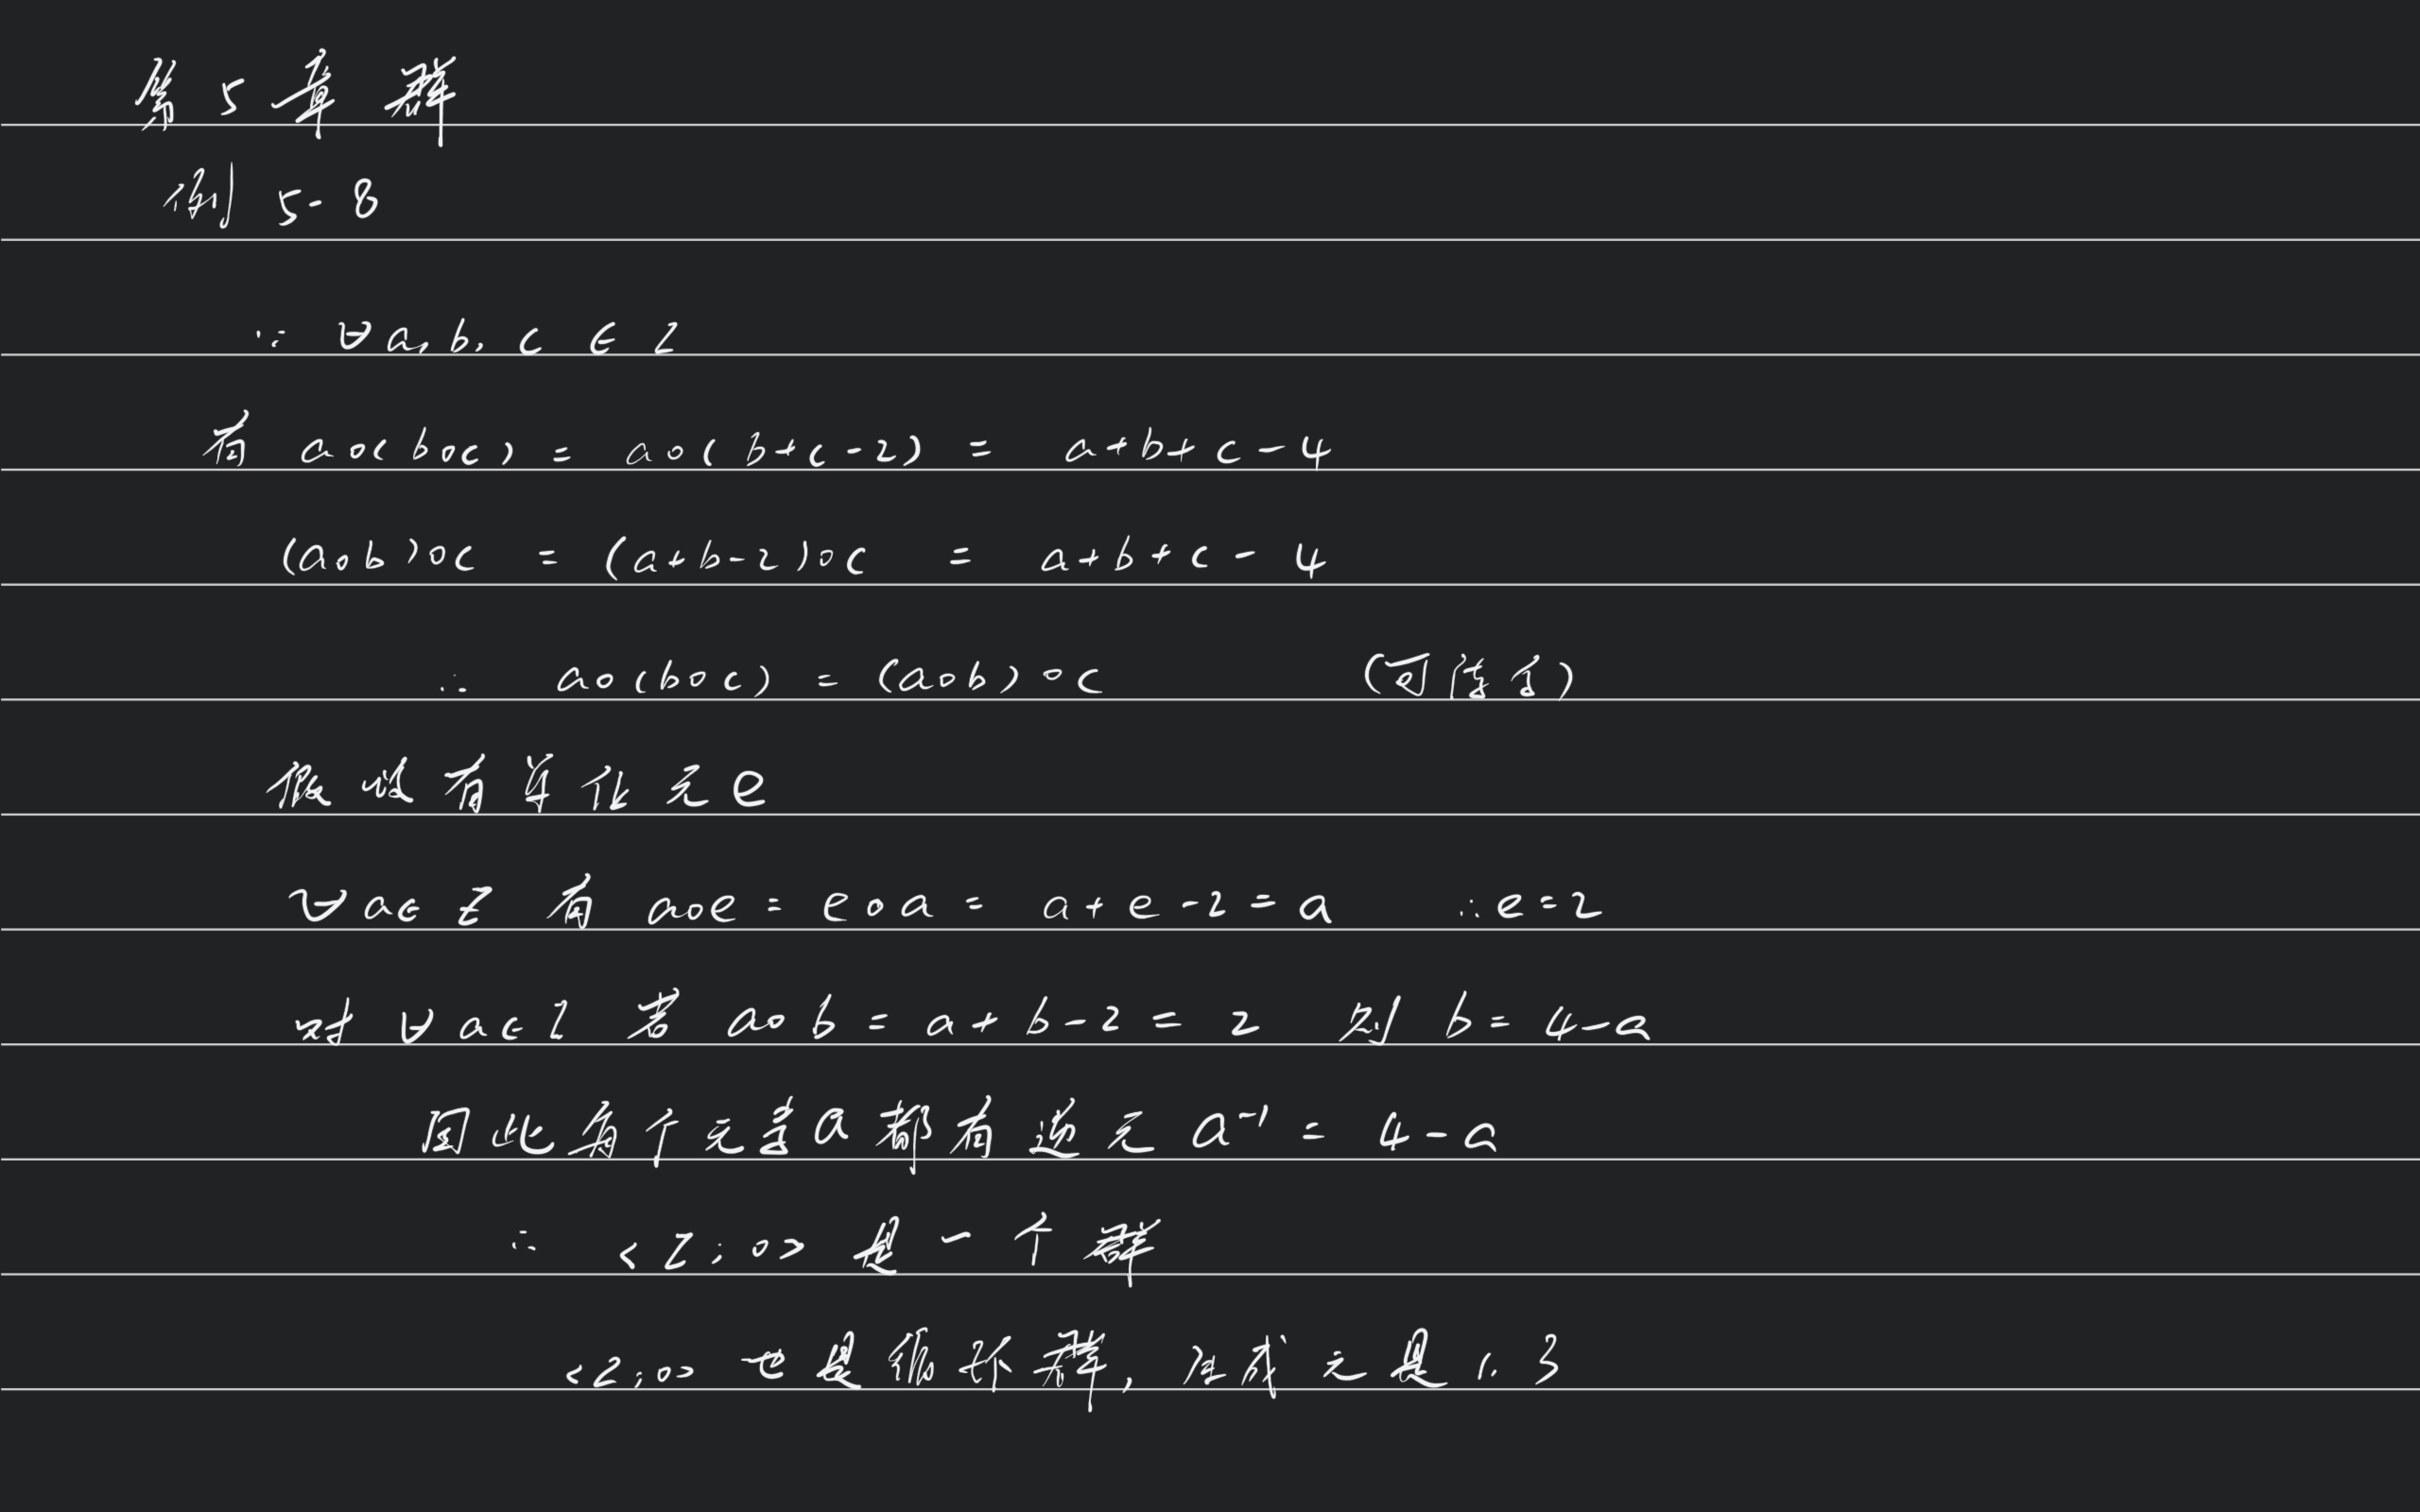 第5章 群
例 5-8
∵ ∀ a, b, c ∈ Z
有 a∘(b∘c) = a∘(b+c-2) = a+b+c-4
(a∘b)∘c = (a+b-2)∘c = a+b+c-4
∴ a∘(b∘c) = (a∘b)∘c (可结合)
假设有单位元e
∀ a∈Z 有 a∘e = e∘a = a+e-2 = a ∴ e=2
对 ∀ a∈Z 若 a∘b = a+b-2 = 2 则 b = 4-a
因此每个元素a都有逆元 a⁻¹ = 4-a
∴ <Z;∘> 是一个群
<Z;∘> 也是循环群, 生成元是 1, 3